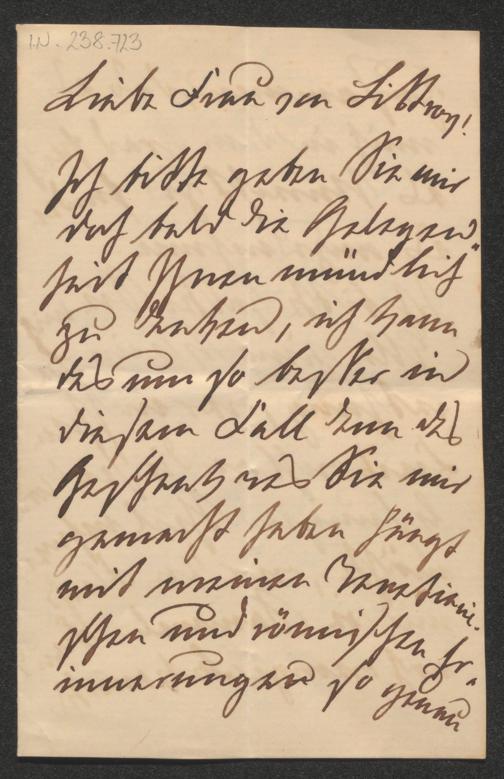 I.N. 238.723
Liebe Frau von Littrow!
Ich bitte geben Sie mir
doch bald die Gelegen-
heit Ihnen mündlich
zu danken, ich kann
das um so besser in
diesem Fall denn das
Geschenk was Sie mir
gemacht haben hängt
mit meinen Venetiani-
schen und römischen Er-
innerungen so genau